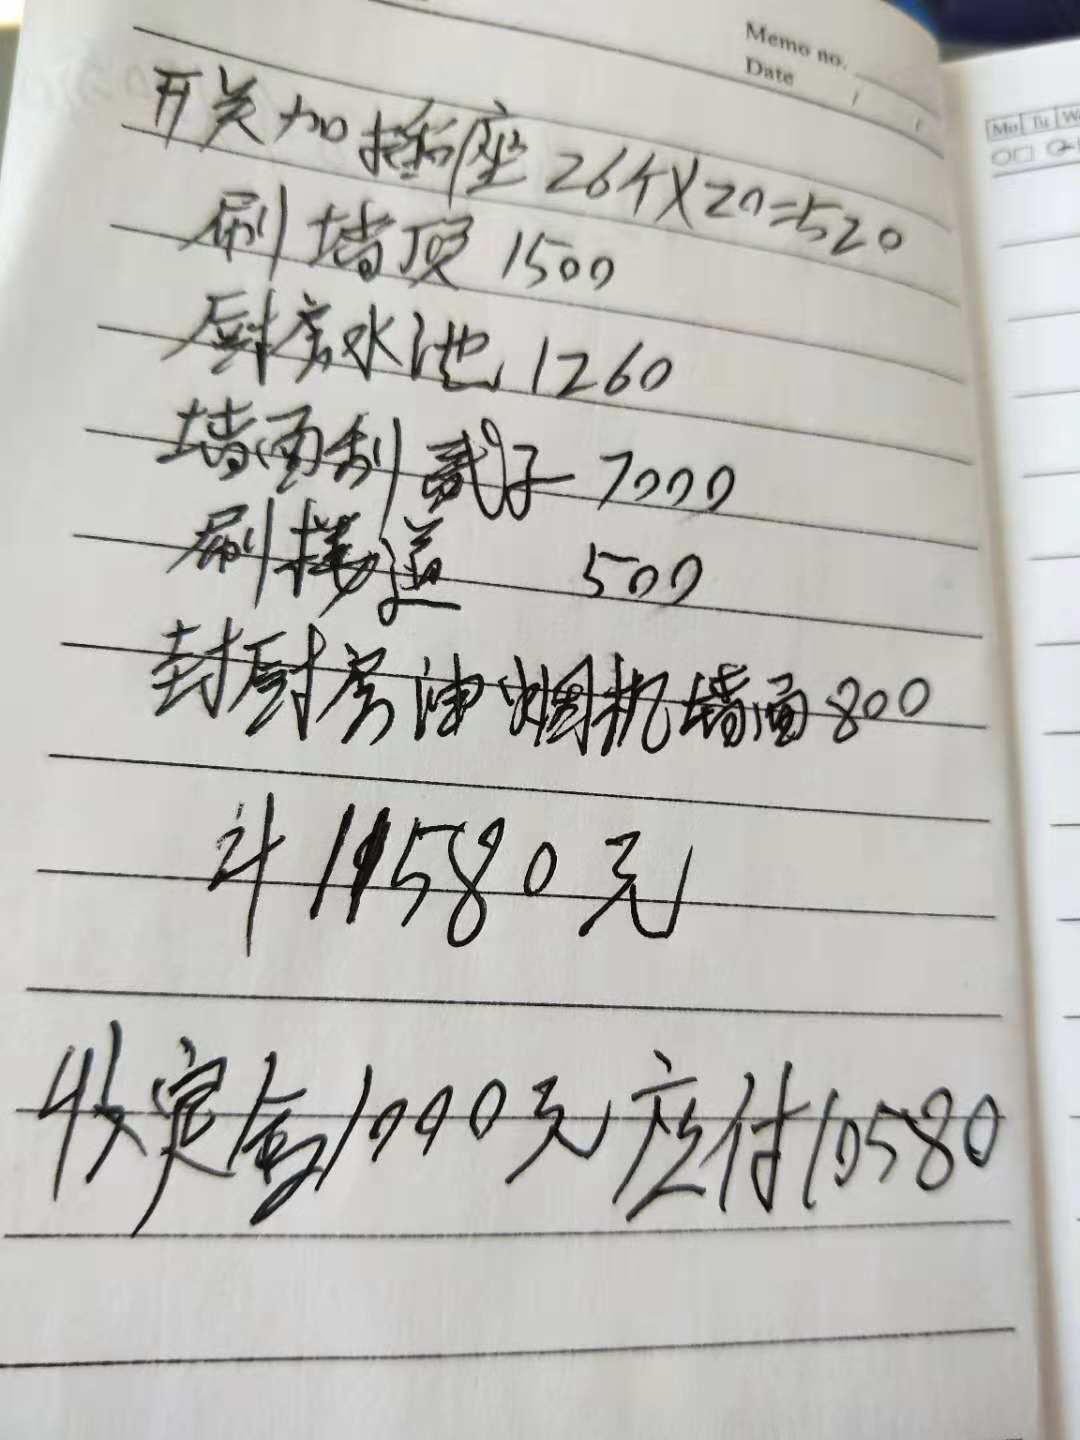 Memo no.
Date / /
Mo Tu We
开关加插座26个X20=520
刷墙顶 1500
厨房水池 1260
墙面刮腻子 7000
刷楼道 500
封厨房油烟机墙面800
计11580元
收定金1000元应付10580